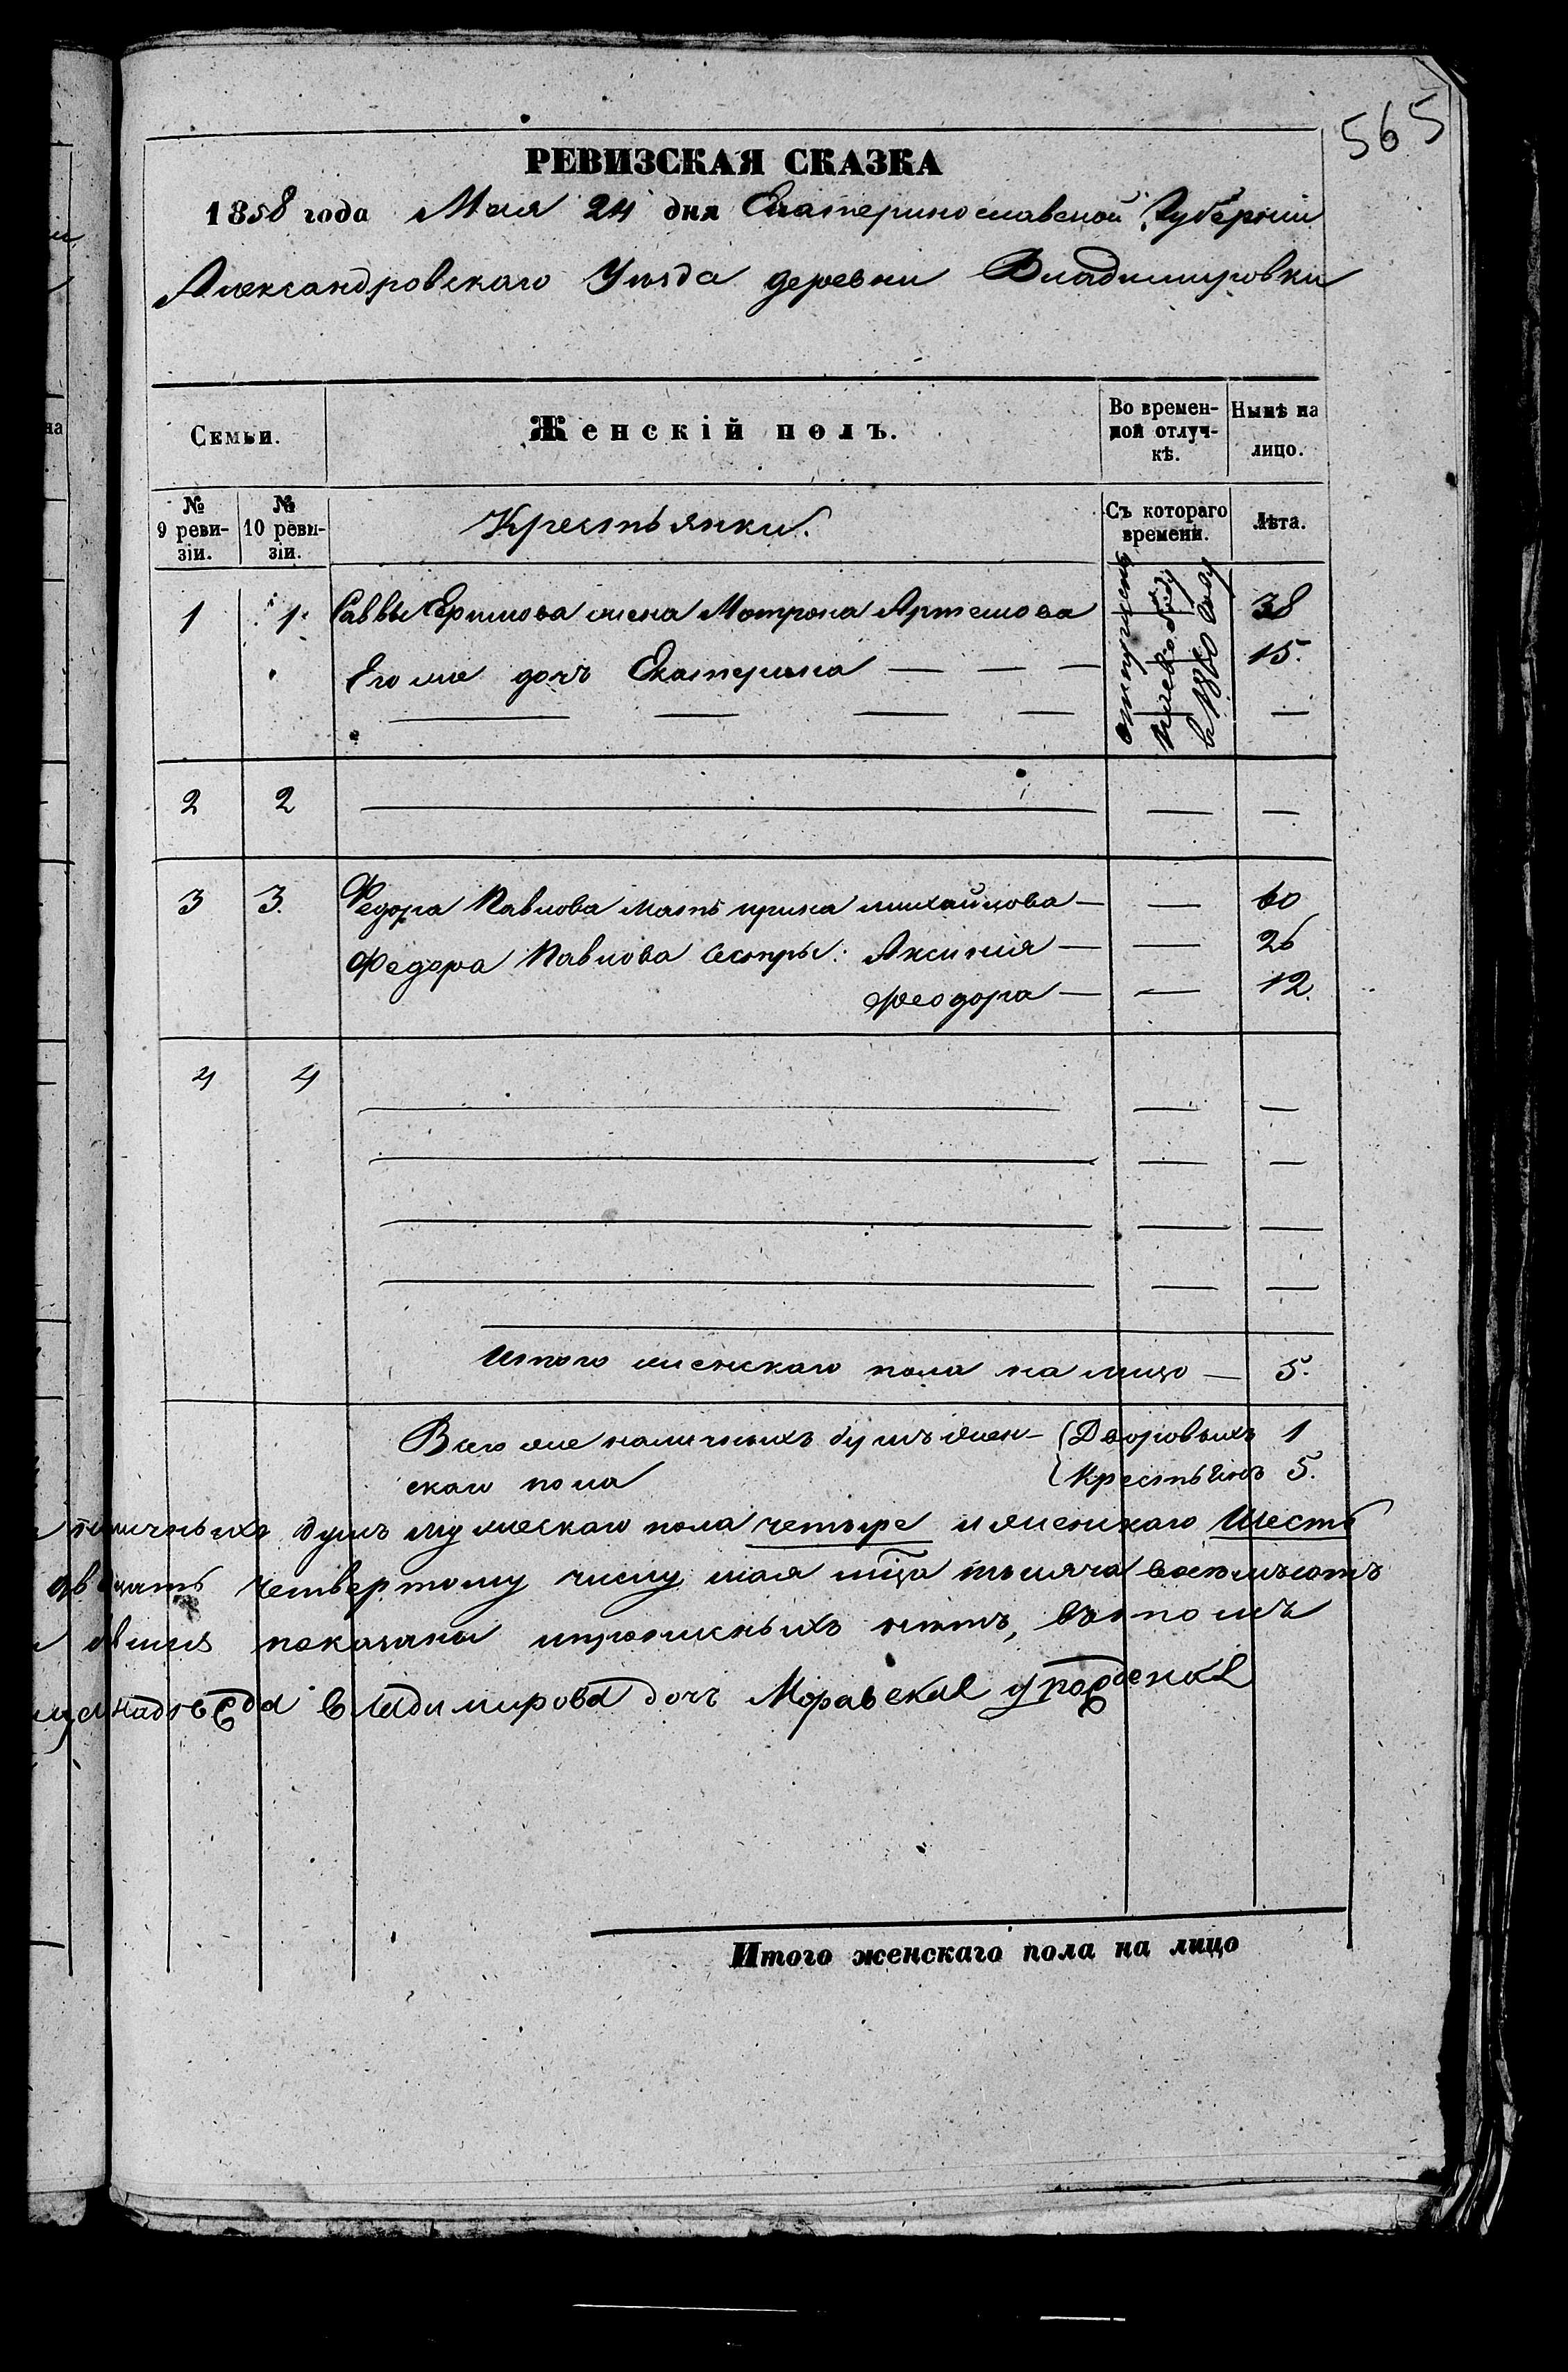 565
РЕВИЗСКАЯ СКАЗКА
1858 года Мая 24 дня Екатеринославской Губерніи
Александровскаго Уѣзда деревни Владимировки
Семьи. Женскій полъ. Во времен-ной отлуч-кѣ. Нынѣ на лицо.
№ 9 реви-зіи. № 10 реви-зіи. Крестьянки. Съ котораго времени. Лѣта.
1 1. Саввы Ефимова жена Мотрона Артемова 38
Его же дочь Екатерина — — — 15.
в 1860 году
2 2 — — —
3 3. Федора Павлова мать Ирина Михайлова — — 60
Федора Павлова сестры: Аксинія — — 26
Феодора — — 12.
4 4
Итого женскаго пола на лицо — 5.
Всего же наличныхъ душъ жен- Дворовыхъ 1
скаго пола Крестьянъ 5.
душъ мужескаго пола четыре и женскаго шесть
четвертому числу мая мца тысяча восемьсотъ
показаны прописныхъ нѣтъ, въ томъ
владимирова дочь Моравская
Итого женскаго пола на лицо